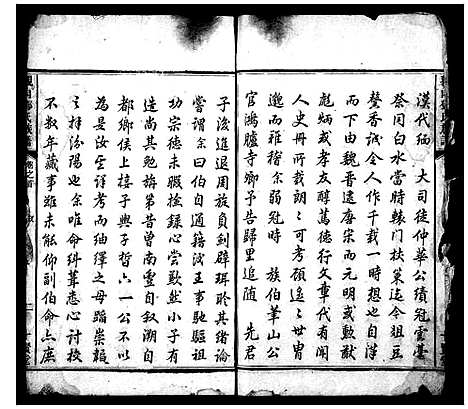 漢代緬　大司徒仲華公績冠雲臺
祭同白水當時棘門扶策迄今俎豆
馨香誠令人作千載一時之想也自漢
而下由魏晉遠唐宋而元明或以勲猷
彪炳或孝友醇篤德行文章代有聞
人史冊所載朗朗可考顧遙遙世胄
邈而難稽余弱冠時　族伯華山公
官鴻臚寺卿予告歸里追隨　先君
子後進退周旋負劍辟珥聆其緒論
嘗謂余曰伯自通籍後王事馳驅祖
功宗德未暇撿錄心嘗歎然小子有
造尚其勉旃第昔曾南豐自叙溯自
都鄉侯上接子輿子哲六一公不以
為是汝堂詳考而紬繹之毋蹈崇韜
之拜汾陽也余唯命糾葺悉心討校
不數年蕆事雖未能仰副伯命亦庶